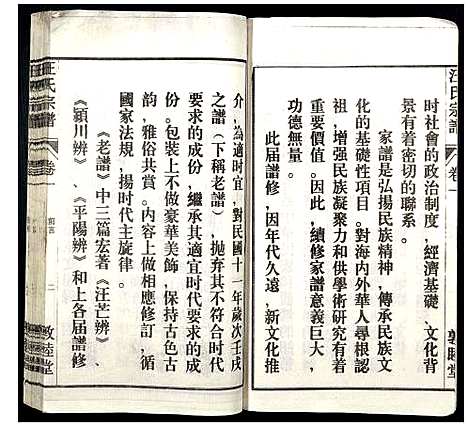 汪氏宗譜
卷一
敦睦堂
时社會的政治制度，經濟基礎、文化背
景有着密切的聯系。
家譜是弘揚民族精神，傳承民族文
化的基礎性項目。對海内外華人尋根認
祖，增强民族凝聚力和供學術研究有着
重要價值。因此，續修家譜意義巨大，
功德無量。
此届譜修，因年代久遠，新文化推
介，為適时宜，對民國十一年歲次壬戌
之譜（下稱老譜），抛弃其不符合时代
要求的成份，繼承其適宜时代要求的成
份。包裝上不做豪華美飾，保持古色古
韵，雅俗共賞。内容上做相應修訂，循
國家法規，揚时代主旋律。
《老譜》中三篇宏著《汪芒辨》、
《潁川辨》、《平陽辨》和上各届譜修
汪氏宗譜
卷一
二
敦睦堂